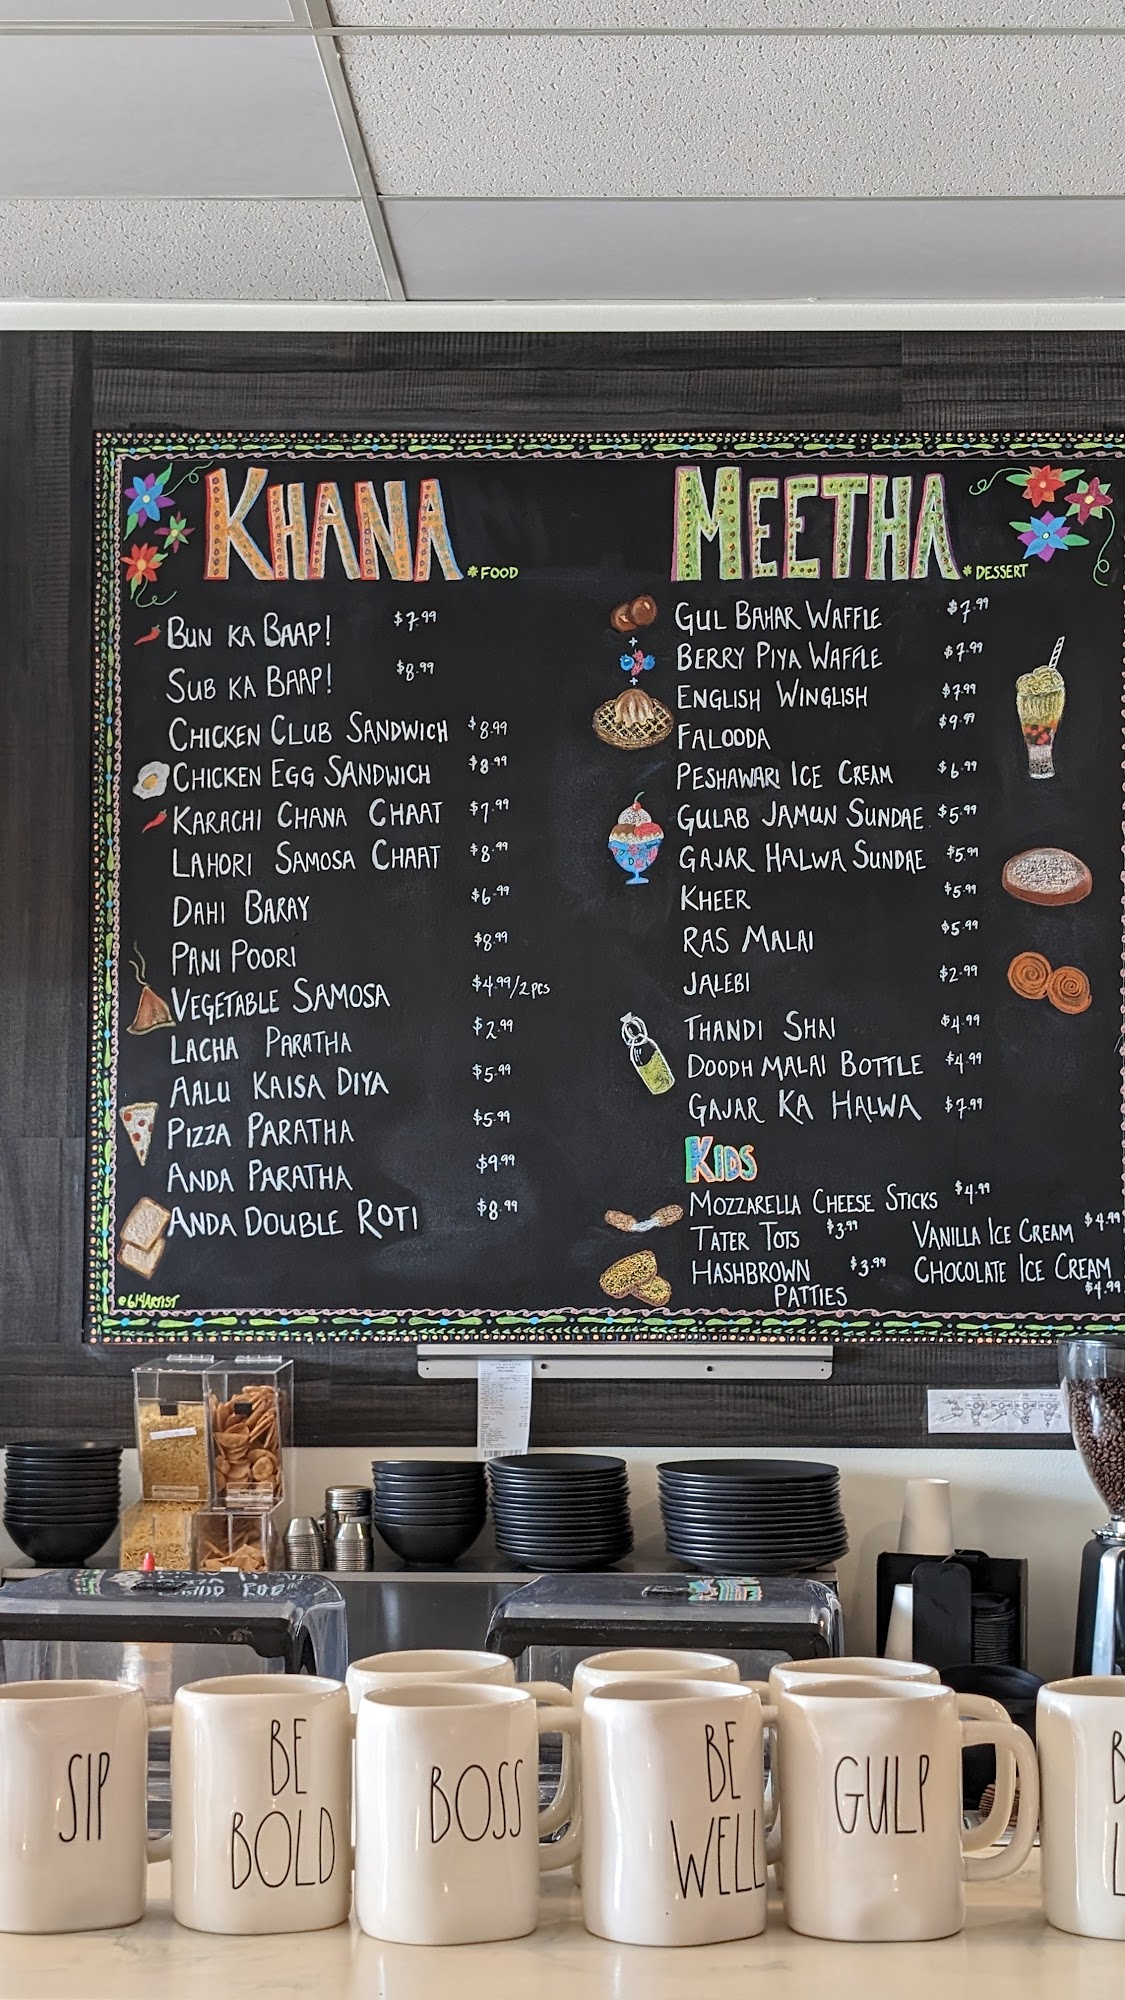 KHANA
*FOOD
BUN KA BAAP! $7.99
SUB KA BAAP! $8.99
CHICKEN CLUB SANDWICH $8.99
CHICKEN EGG SANDWICH $8.99
KARACHI CHANA CHAAT $7.99
LAHORI SAMOSA CHAAT $8.99
DAHI BARAY $6.99
PANI POORI $8.99
VEGETABLE SAMOSA $4.99/2PCS
LACHA PARATHA $2.99
AALU KAISA DIYA $5.99
PIZZA PARATHA $5.99
ANDA PARATHA $9.99
ANDA DOUBLE ROTI $8.99
@614ARTIST
MEETHA
*DESSERT
GUL BAHAR WAFFLE $7.99
BERRY PIYA WAFFLE $7.99
ENGLISH WINGLISH $7.99
FALOODA $9.99
PESHAWARI ICE CREAM $6.99
GULAB JAMUN SUNDAE $5.99
GAJAR HALWA SUNDAE $5.99
KHEER $5.99
RAS MALAI $5.99
JALEBI $2.99
THANDI SHAI $4.99
DOODH MALAI BOTTLE $4.99
GAJAR KA HALWA $7.99
KIDS
MOZZARELLA CHEESE STICKS $4.99
TATER TOTS $3.99 VANILLA ICE CREAM $4.99
HASHBROWN $3.99 CHOCOLATE ICE CREAM
PATTIES $4.99
SIP
BE
BOLD
BOSS
BE
WELL
GULP
B
L